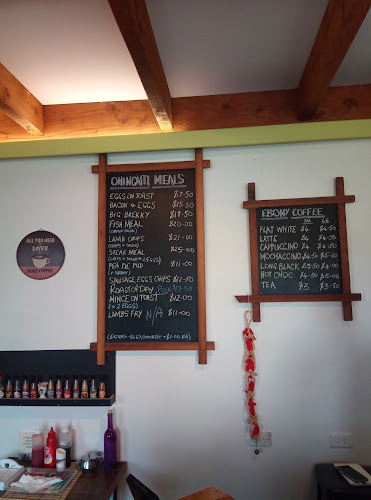 OMINONTI MEALS
EGGS ON TOAST $7-50
BACON & EGGS $15-50
BIG BREKKY $19-50
FISH MEAL $20-00
LAMB CHOPS $21-00
STEAK MEAL $25-00
PEA PIE PUD $11-00
SAUSAGE, EGGS, CHIPS $12-50
ROAST OF DAY
MINCE ON TOAST $12-00
(+ 2 EGGS)
LAMBS FRY N/A $11-00
EBONY COFFEE
SM LG
FLAT WHITE $4 $4-50
LATTE $4 $4-50
CAPPUCCINO $4 $4-50
MOCHACCINO $4-50 $5
LONG BLACK £3-50 $4
HOT CHOC $4 $4-50
TEA $3 $3-50
ALL YOU NEED IS
LOVE
MORE COFFEE